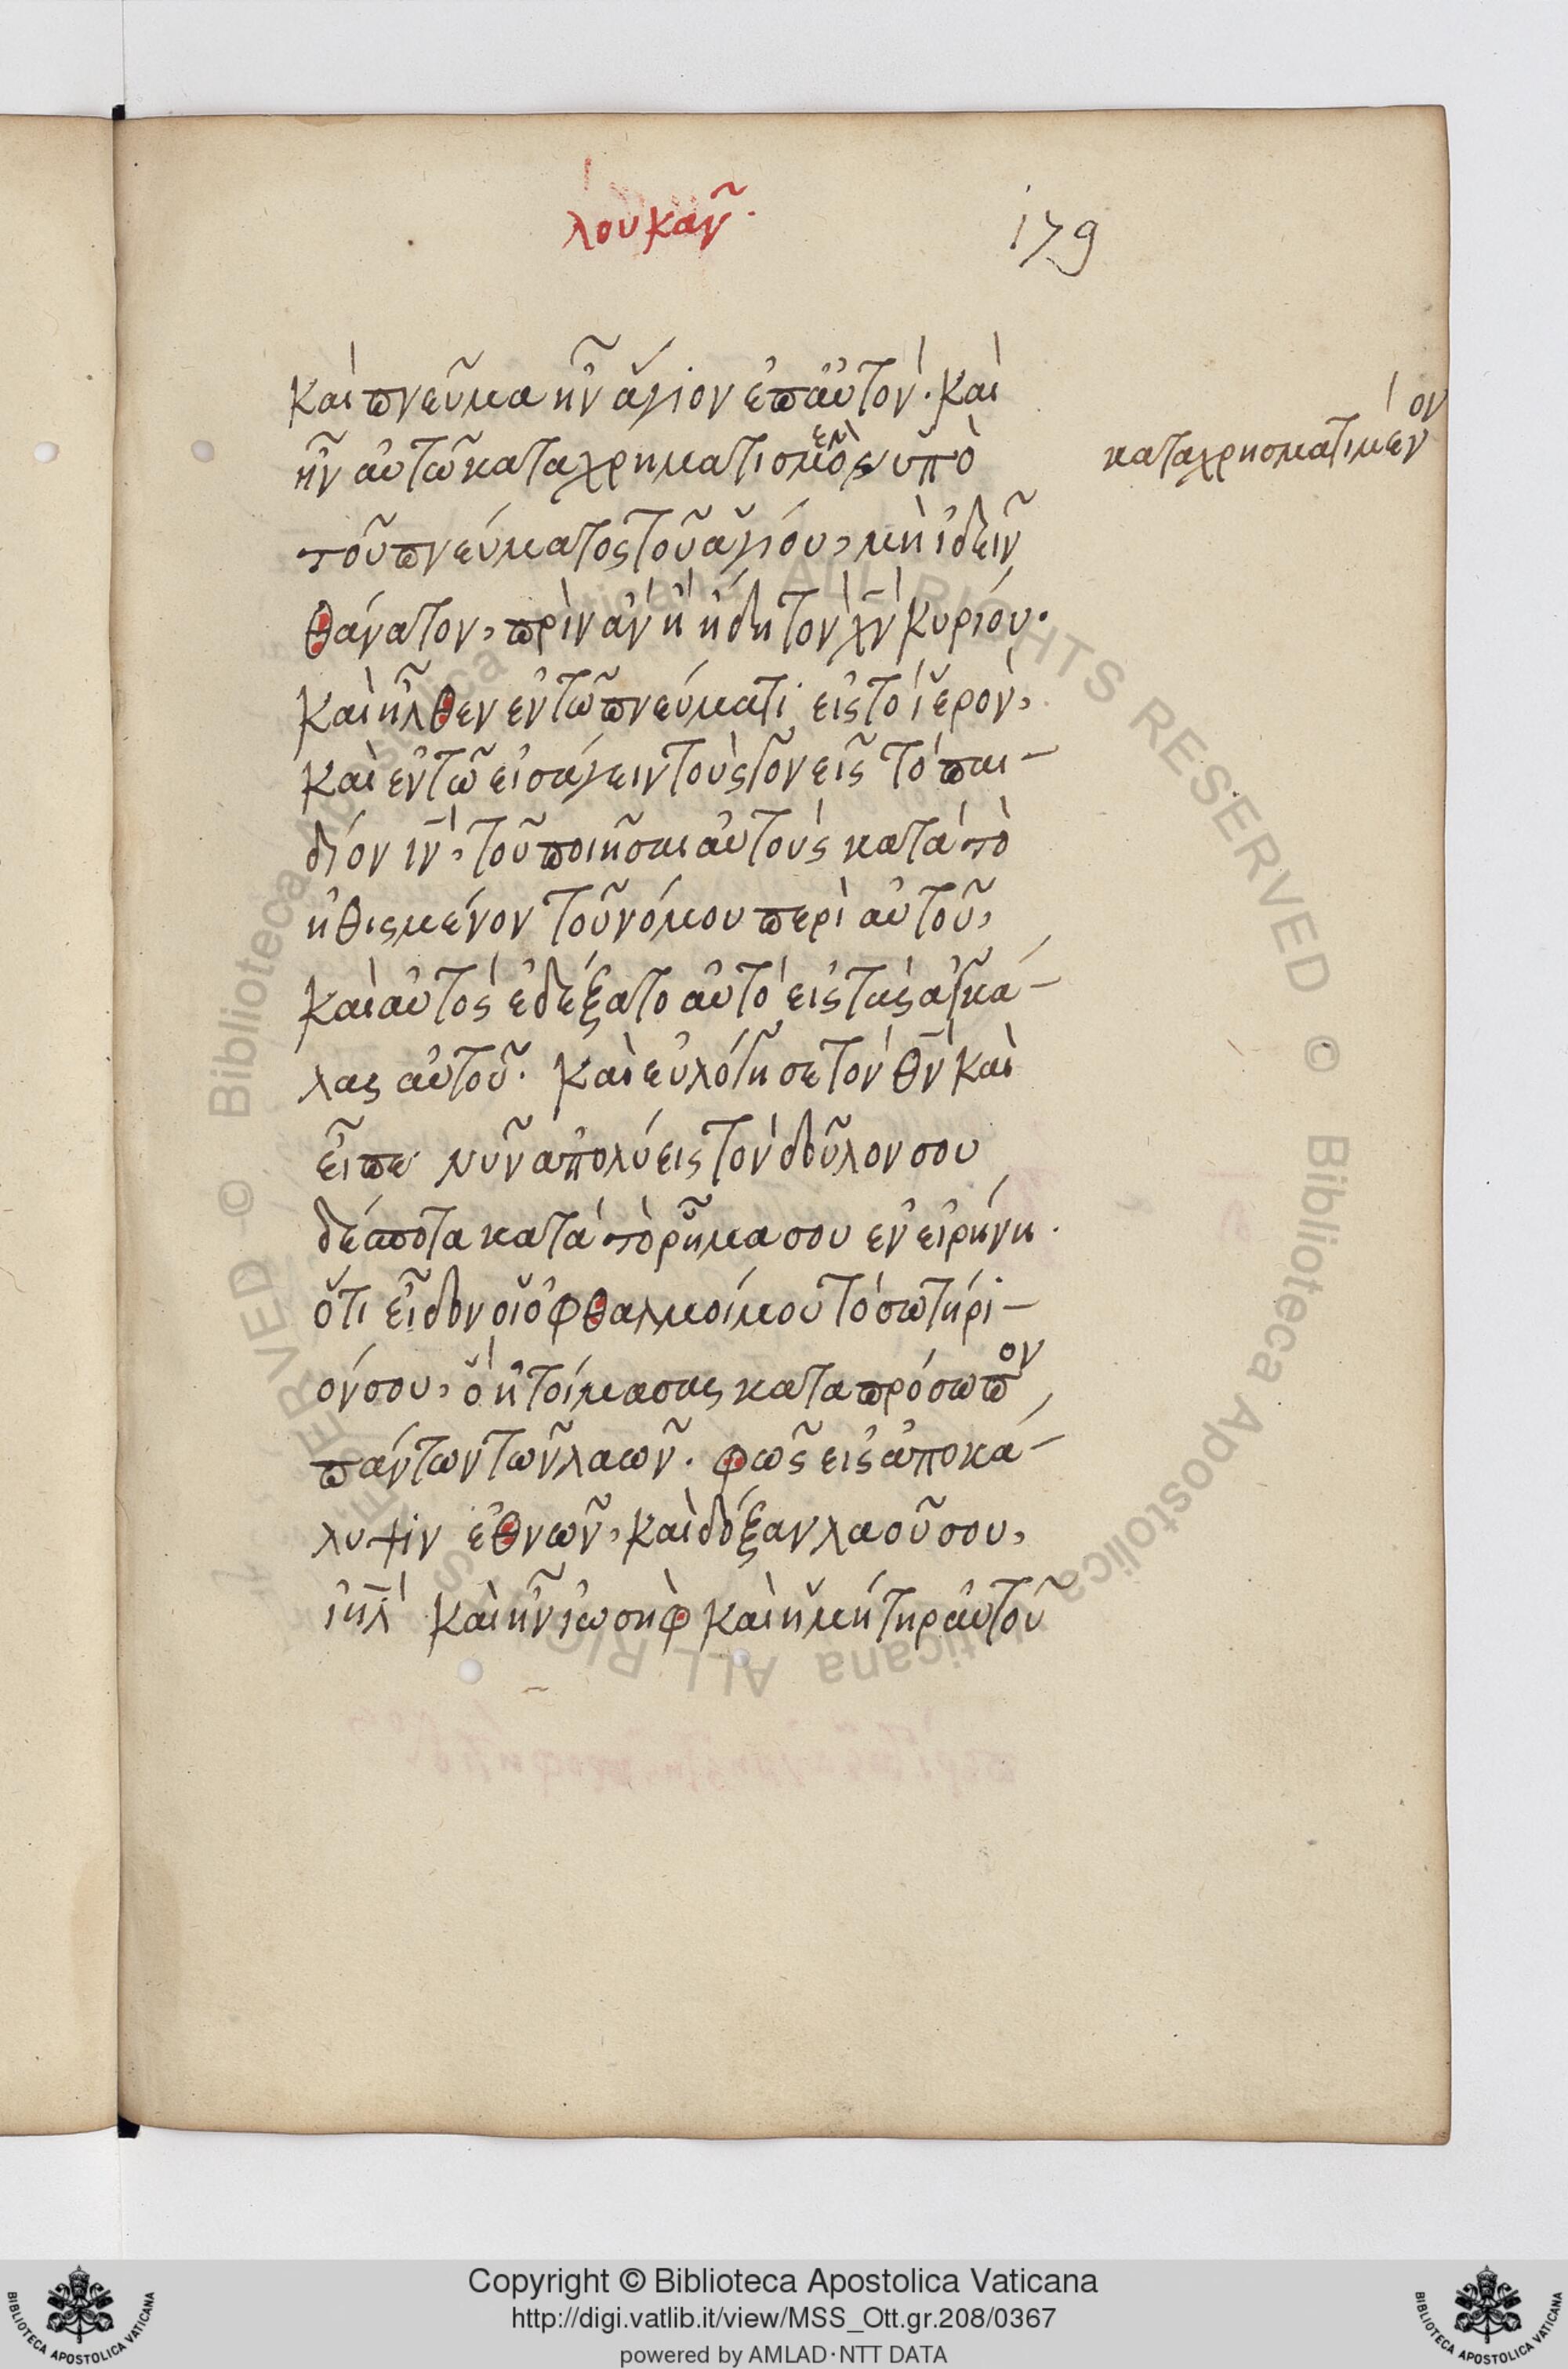 λουκᾶν.
179
καὶ πνεῦμα ἦν ἅγιον ἐπαὐτόν. καὶ
ἦν αὐτῶ καταχρηματισμὸς ὑπὸ
καταχρησματιμένον
τοῦ πνεύματος τοῦ ἁγίου, μὴ ἰδεῖν
θάνατον, πρὶν ἂν ἢ ἤδη τὸν χν κυρίου.
καὶ ἦλθεν ἐν τῶ πνεύματι εἰς τὸ ἱερόν,
καὶ ἐν τῶ εἰσάγειν τοὺς γονεῖς τὸ παι-
δίον ιν, τοῦ ποιῆσαι αὐτοὺς κατὰ τὸ
ἠθισμένον τοῦ νόμου περὶ αὐτοῦ,
καὶ αὐτὸς ἐδέξατο αὐτὸ εἰς τὰς ἀγκά-
λας αὐτοῦ. καὶ εὐλόγησε τὸν θν καὶ
εἶπε νῦν ἀπολύεις τὸν δοῦλον σου
δέσποτα κατὰ τὸ ῥῆμα σου ἐν εἰρήνη.
ὅτι εἶδον οἱ ὀφθαλμοί μου τὸ σωτήρι-
όν σου, ὃ ἡτοίμασας κατα πρόσωπον
πάντων τῶν λαῶν. φῶς εἰς ἀποκά-
λυψιν ἐθνῶν, καὶ δόξαν λαοῦ σου,
ιηλ καὶ ἦν ἰωσὴφ καὶ ἡ μήτηρ αὐτοῦ
Copyright © Biblioteca Apostolica Vaticana
http://digi.vatlib.it/view/MSS_Ott.gr.208/0367
powered by AMLAD·NTT DATA